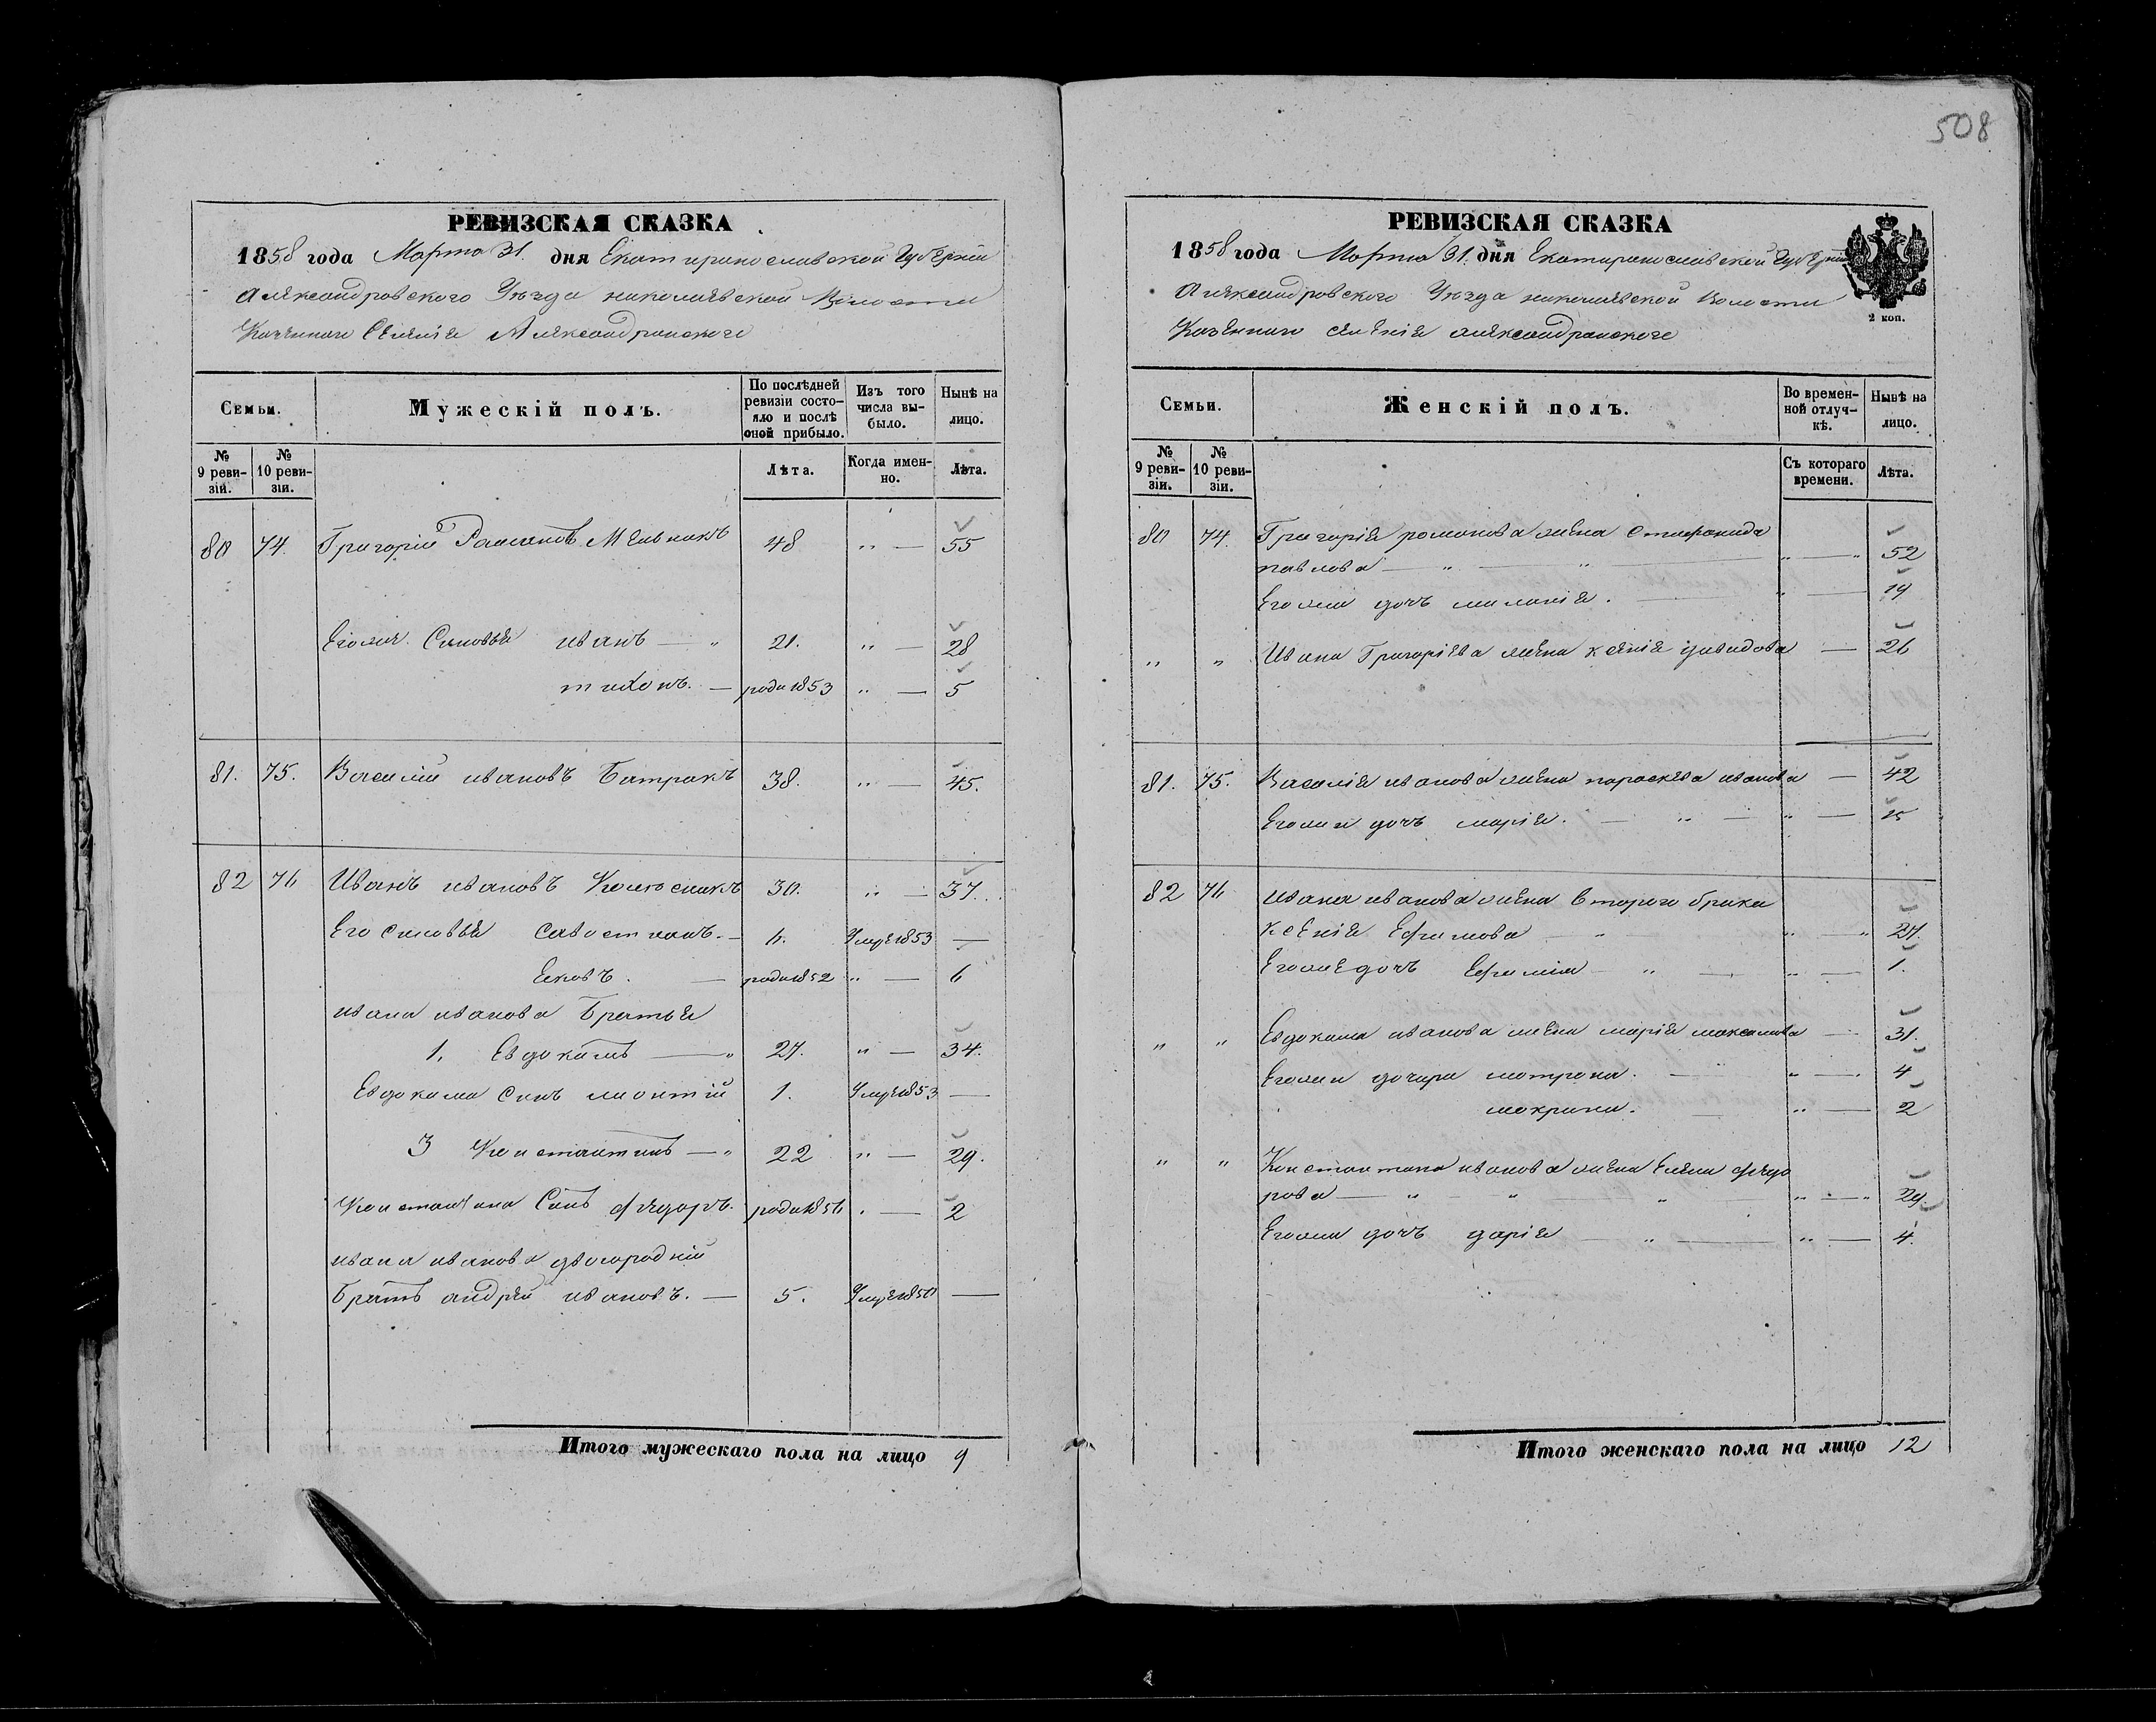 508
РЕВИЗСКАЯ СКАЗКА
1858 года Марта 31. дня Екатеринославской Губерніи
Александровского Уезда николаевской Волости
Казенного Селенія Александровского
Семьи. Мужескій полъ. По послѣдней ревизіи состояло и послѣ оной прибыло. Изъ того числа выбыло. Нынѣ на лицо.
№ 9 ревизіи. № 10 ревизіи. Лѣта. Когда именно. Лѣта.
80 74. Григорій Романовъ Мельникъ 48 " — 55
Егоже Сыновья иванъ — " 21. " — 28
тихонъ. — роди 1853 " — 5
81. 75. Василій ивановъ Батракъ 38. " — 45.
82 76 Иванъ ивановъ 30. " — 37.
Его сыновья савостианъ. — 6. Умре 1853 —
Яковъ. — роди 1852 " — 6
ивана иванова Братья
1. Евдокимъ — " 27. " — 34.
Евдокима Сынъ леонтій 1. Умре 1853 —
3 Константинъ — " 22 " — 29.
Константина Сынъ федоръ. роди 1856 . — 2
ивана иванова двоюродній
Братъ андрей ивановъ. — 5. Умре 1850 —
Итого мужескаго пола на лицо 9
РЕВИЗСКАЯ СКАЗКА
1858 года Марта 31. дня Екатеринославской Губерніи
Александровского Уезда николаевской волости
Казенного селенія александровского
2 коп.
Семьи. Женскій полъ. Во временной отлучкѣ. Нынѣ на лицо.
№ 9 ревизіи. № 10 ревизіи. Съ котораго времени. Лѣта.
80 74. Григорія романова жена стефанида
павлова — " — " " — " 52
Егоже дочь меланія. — " — 19
" " Ивана Григоріева жена ксенія давидова — 26
81. 75. Василія иванова жена параскева иванова — 42
Егоже дочь марія. — " — " — 15
82 76 ивана иванова жена второго брака
ксенія Ефимова — " " — " 27.
Егоже дочь Ефимія — " — " — 1.
" " Евдокима иванова жена марія максимова — 31.
Егоже дочери матрона. — " — 4
макрина. — " — 2
" " Константина иванова жена Елена федо
рова — " — " — " " — " 29.
Егоже дочь дарія — " — " — 4.
Итого женскаго пола на лицо 12